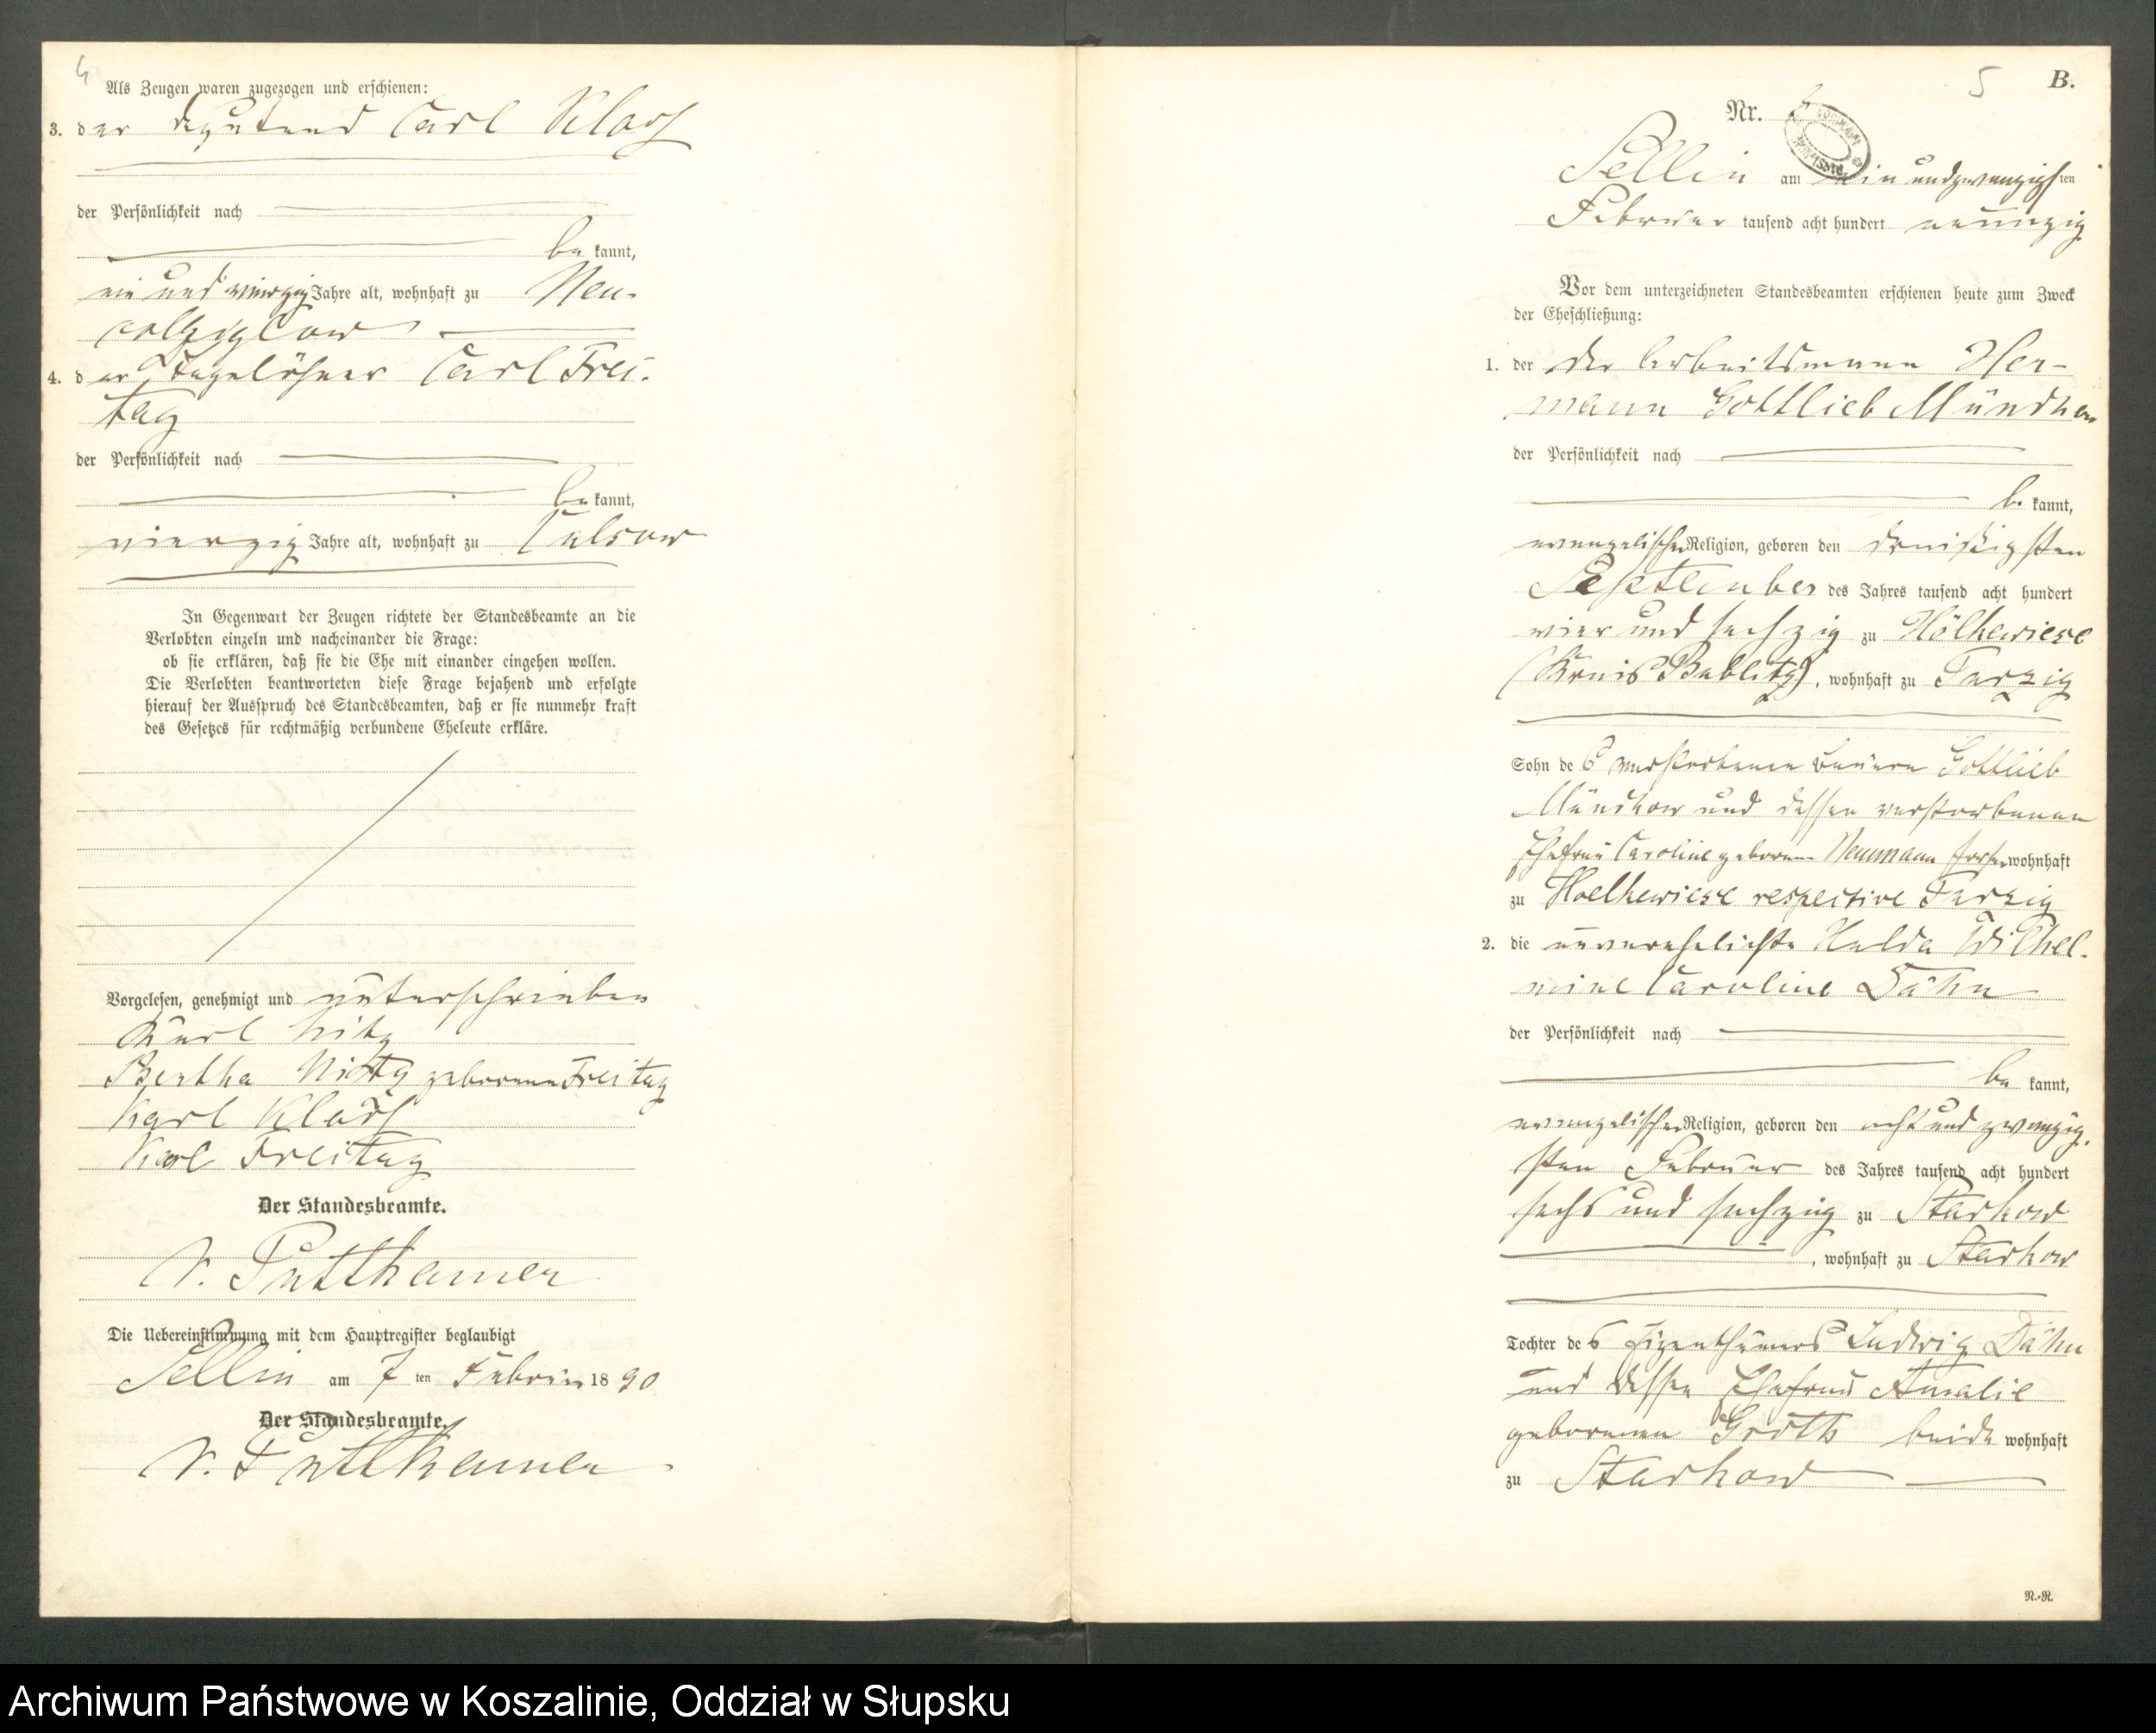 4
Als Zeugen waren zugezogen und erschienen:
3. der Deputant Carl Klaß
der Persönlichkeit nach
be kannt,
ein und vierzig Jahre alt, wohnhaft zu Neu-
colziglow
4. der Tagelöhner Carl Frei-
tag
der Persönlichkeit nach
be kannt,
vierzig Jahre alt, wohnhaft zu Culsow
In Gegenwart der Zeugen richtete der Standesbeamte an die
Verlobten einzeln und nacheinander die Frage:
ob sie erklären, daß sie die Ehe mit einander eingehen wollen.
Die Verlobten beantworteten diese Frage bejahend und erfolgte
hierauf der Ausspruch des Standesbeamten, daß er sie nunmehr kraft
des Gesetzes für rechtmäßig verbundene Eheleute erkläre.
Vorgelesen, genehmigt und unterschrieben
Karl Nitz
Bertha Nitz geborene Freitag
Karl Klaß
Karl Freitag
Der Standesbeamte.
v. Puttkamer
Die Uebereinstimmung mit dem Hauptregister beglaubigt
Sellin am 7 ten Februar 18 90
Der Standesbeamte.
v. Puttkamer
5
B.
Nr.
Sellin am ein und zwanzigsten
Februar tausend acht hundert neunzig
Vor dem unterzeichneten Standesbeamten erschienen heute zum Zweck
der Eheschließung:
1. der der Arbeitsmann Her-
mann Gottlieb Mündkow
der Persönlichkeit nach
be kannt,
evangelischer Religion, geboren den dreißigsten
September des Jahres tausend acht hundert
vier und sechzig zu Hölkewiese
(Kreis Bublitz), wohnhaft zu Farzig
Sohn des verstorbenen Bauern Gottlieb
Mündkow und dessen verstorbenen
Ehefrau Caroline geborene Neumann früher wohnhaft
zu Hoelkewiese respective Farzig
2. die unverehelichte Hulda Wilhel-
mine Caroline Dähn
der Persönlichkeit nach
be kannt,
evangelischer Religion, geboren den acht und zwanzig-
sten Februar des Jahres tausend acht hundert
sechs und sechzig zu Starkow
, wohnhaft zu Starkow
Tochter des Eigenthümers Ludwig Dähn
und dessen Ehefrau Amalie
geborenen Groth beide wohnhaft
zu Starkow
N.-N.
Archiwum Państwowe w Koszalinie, Oddział w Słupsku